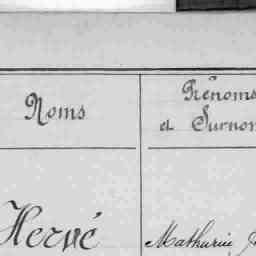 Noms
Prénoms
et Surnom
Hervé
Mathurin